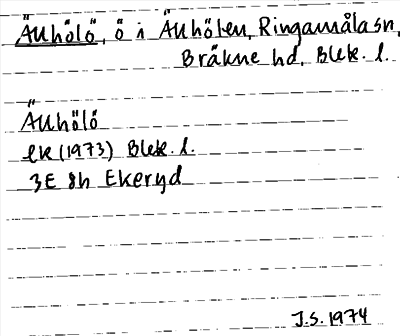 Äuhölö, ö i Äuhölen, Ringamåla sn,
Bräkne hd, Blek. l.
Äuhölö
ek (1973) Blek. l.
3E 8h Ekeryd
J.S. 1974